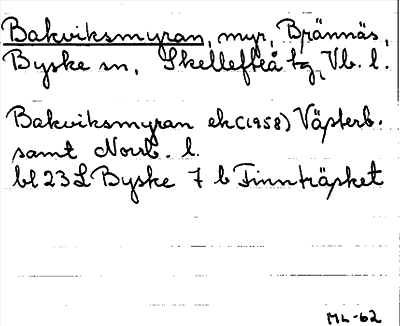 Bakviksmyran, myr, Brännäs,
Byske sn, Skellefteå tg, Vb. l.
Bakviksmyran ek(1958) Västerb.
samt Norrb. l.
bl 23 L Byske 7 b Finnträsket
ML-62